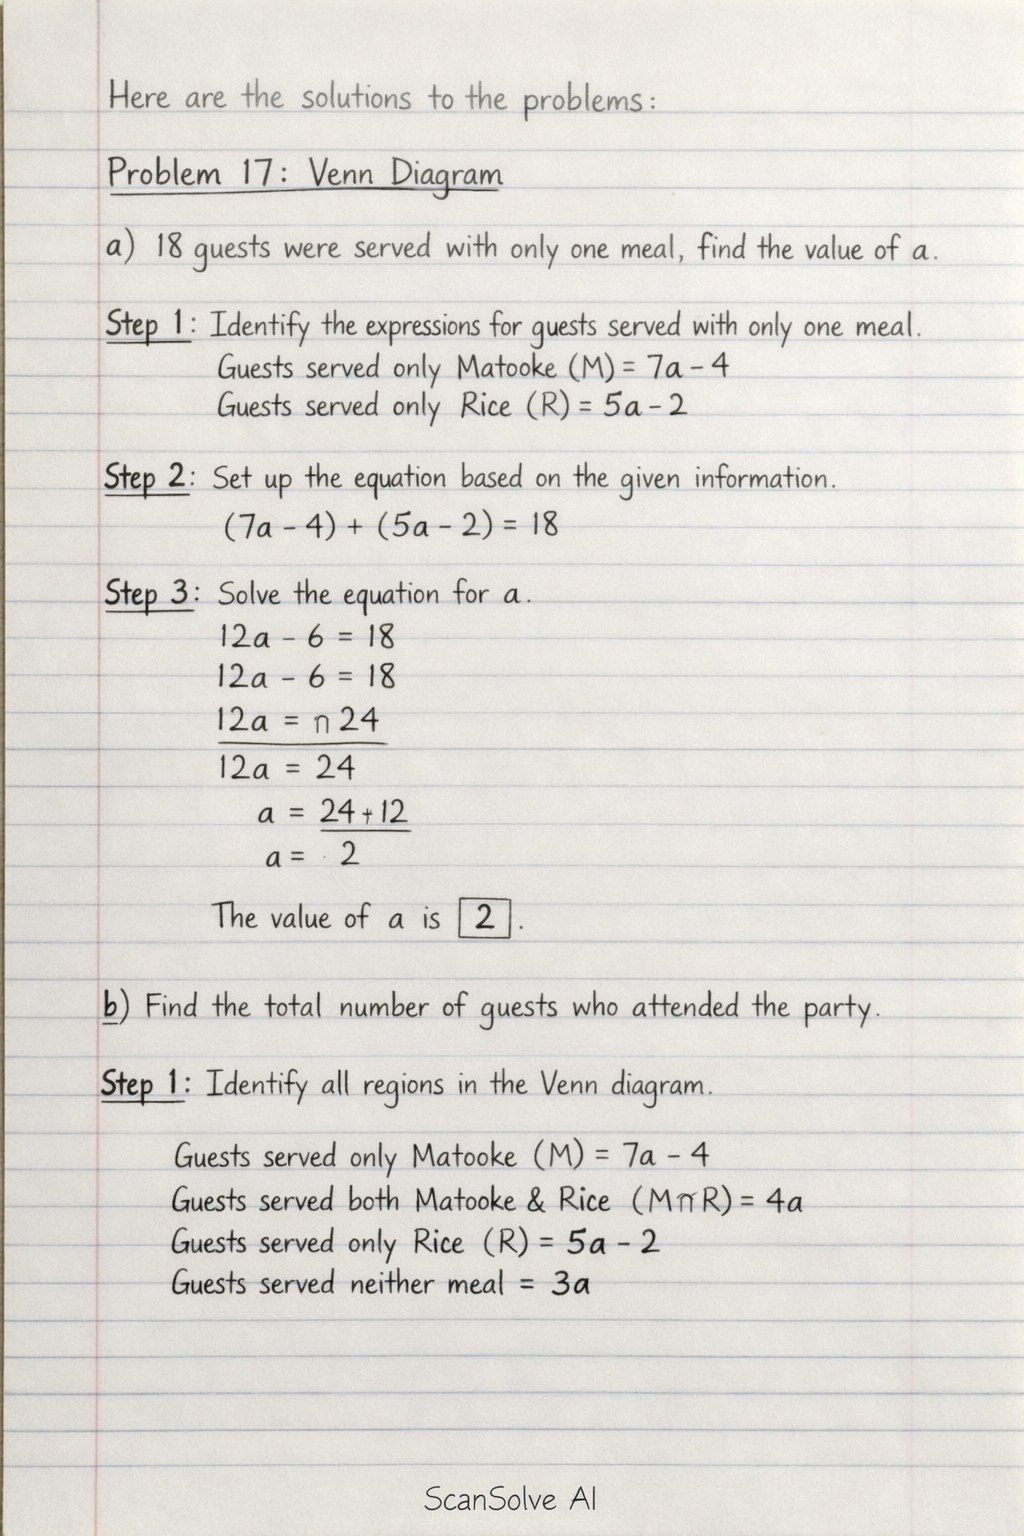 Here are the solutions to the problems:
Problem 17: Venn Diagram
a) 18 guests were served with only one meal, find the value of a.
Step 1: Identify the expressions for guests served with only one meal.
Guests served only Matooke (M) = 7a - 4
Guests served only Rice (R) = 5a - 2
Step 2: Set up the equation based on the given information.
(7a - 4) + (5a - 2) = 18
Step 3: Solve the equation for a.
12a - 6 = 18
12a - 6 = 18
12a = n 24
12a = 24
a = 24 + 12
a = 2
The value of a is 2.
b) Find the total number of guests who attended the party.
Step 1: Identify all regions in the Venn diagram.
Guests served only Matooke (M) = 7a - 4
Guests served both Matooke & Rice (M∩R) = 4a
Guests served only Rice (R) = 5a - 2
Guests served neither meal = 3a
ScanSolve AI